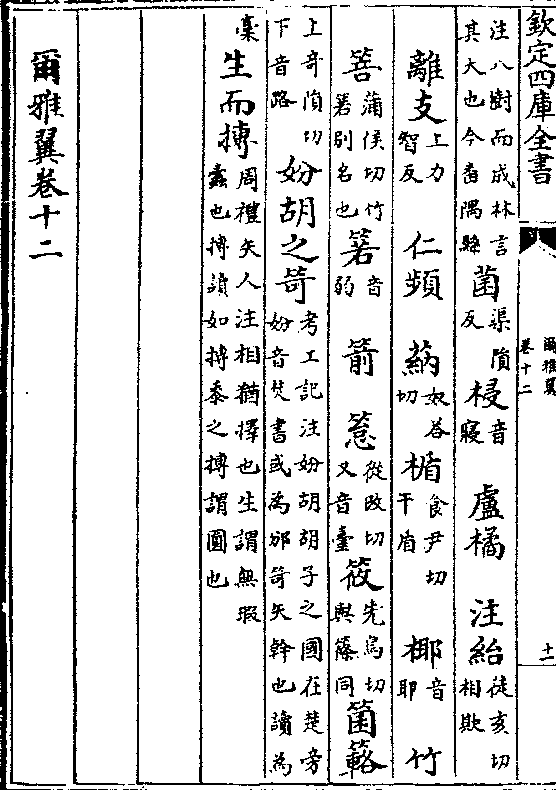 欽定四庫全書
爾雅翼
卷十二
十一
注八樹而成林言
其大也今番隅縣
菌
渠隕
反
梫
音
寢
盧橘
注紿
徒亥切
相欺
離支
上力
智反
仁頻
蒳
奴荅
切
楯
食尹切
干盾
椰
音
耶
竹
箁
蒲侯切竹
箬別名也
箬
音
弱
箭
簜
從改切
又音臺
筱
先鳥切
與篠同
箘簵
上奇隕切
下音路
妢胡之笴
考工記注妢胡胡子之國在楚旁
妢音焚書或為邠笴矢幹也讀為
稾
生而摶
周禮矢人注相猶擇也生謂無瑕
蠹也摶讀如摶黍之摶謂圜也
爾雅翼卷十二